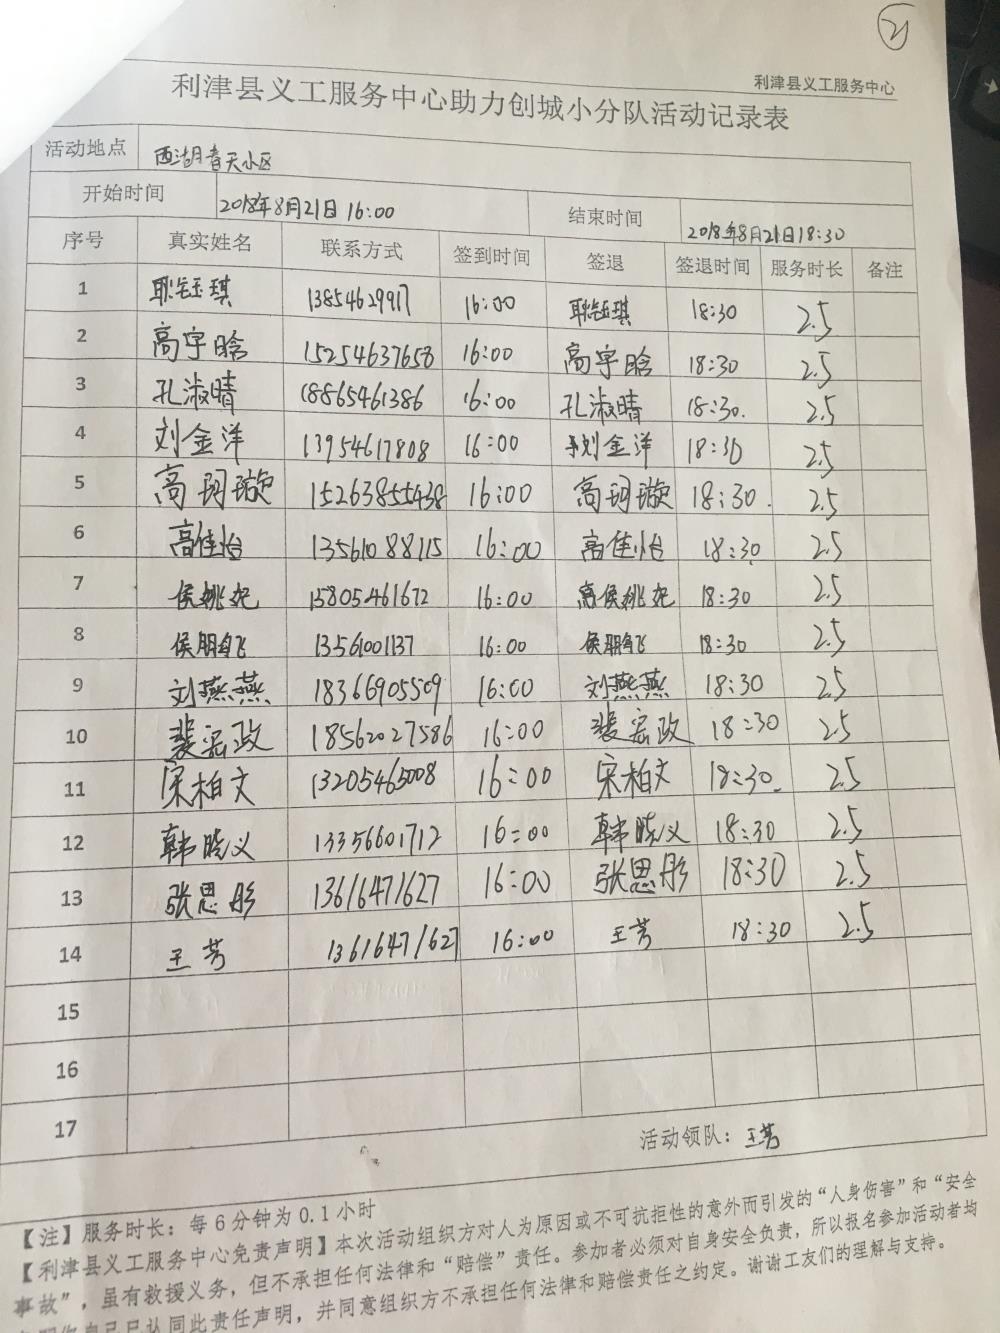 21
利津县义工服务中心
利津县义工服务中心助力创城小分队活动记录表
活动地点 西湖春天小区
开始时间 2018年8月21日 16:00 结束时间 2018年8月21日18:30
序号 真实姓名 联系方式 签到时间 签退 签退时间 服务时长 备注
1 耿钰琪 13854629917 16:00 耿钰琪 18:30 2.5
2 高宇晗 15254637658 16:00 高宇晗 18:30 2.5
3 孔淑晴 18865461386 16:00 孔淑晴 18:30. 2.5
4 刘金洋 13954617808 16:00 刘金洋 18:30 2.5
5 高珂璇 15263855438 16:00 高珂璇 18:30. 2.5
6 高佳怡 13561088115 16:00 高佳怡 18:30 2.5
7 侯姚妃 15805461672 16:00 侯姚妃 18:30 2.5
8 侯鹏飞 13561001137 16:00 侯鹏飞 18:30 2.5
9 刘燕燕 18366905509 16:00 刘燕燕 18:30 2.5
10 裴宏政 18562027586 16:00 裴宏政 18:30 2.5
11 宋柏文 13205465008 16:00 宋柏文 18:30. 2.5
12 韩晓义 13356601712 16:00 韩晓义 18:30 2.5
13 张思彤 13616471627 16:00 张思彤 18:30 2.5
14 王芳 13616471627 16:00 王芳 18:30 2.5
15
16
17
活动领队：王芳
【注】服务时长：每6分钟为0.1小时
【利津县义工服务中心免责声明】本次活动组织方对人为原因或不可抗拒性的意外而引发的“人身伤害”和“安全
事故”，虽有救援义务，但不承担任何法律和“赔偿”责任。参加者必须对自身安全负责，所以报名参加活动者均
自己已认同此责任声明，并同意组织方不承担任何法律和赔偿责任之约定。谢谢工友们的理解与支持。